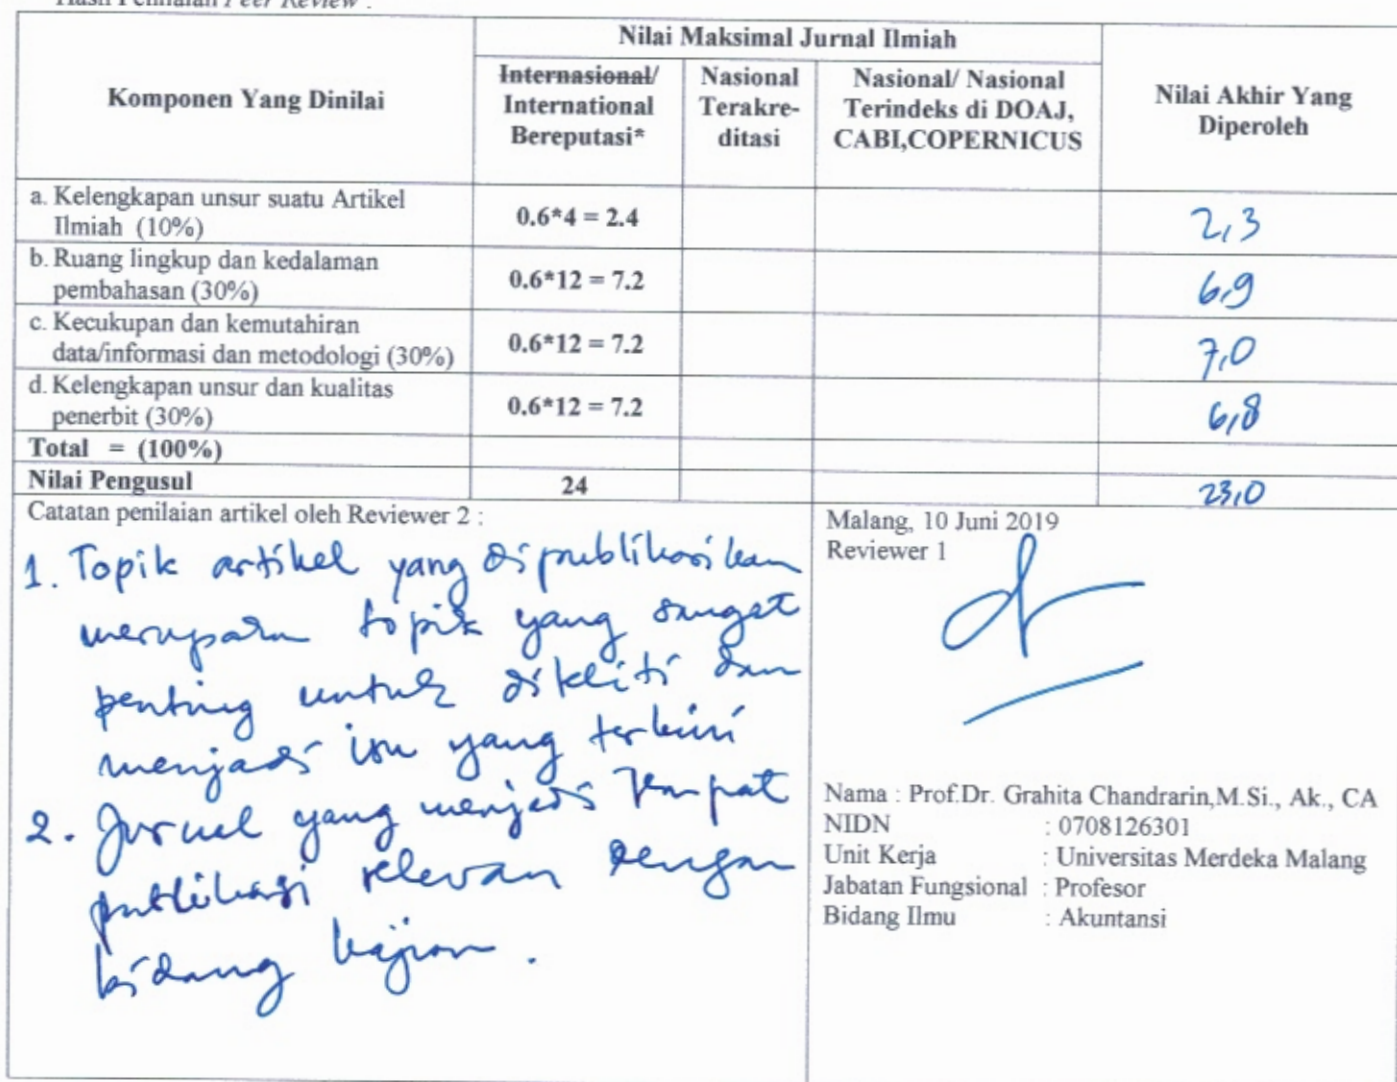 Hasil Penilaian Peer Review :
Komponen Yang Dinilai
Nilai Maksimal Jurnal Ilmiah
Internasional/
International
Bereputasi*
Nasional
Terakre-
ditasi
Nasional/ Nasional
Terindeks di DOAJ,
CABI,COPERNICUS
Nilai Akhir Yang
Diperoleh
a. Kelengkapan unsur suatu Artikel
Ilmiah (10%)
0.6*4 = 2.4
2,3
b. Ruang lingkup dan kedalaman
pembahasan (30%)
0.6*12 = 7.2
6,9
c. Kecukupan dan kemutahiran
data/informasi dan metodologi (30%)
0.6*12 = 7.2
7,0
d. Kelengkapan unsur dan kualitas
penerbit (30%)
0.6*12 = 7.2
6,8
Total = (100%)
Nilai Pengusul
24
23,0
Catatan penilaian artikel oleh Reviewer 2 :
1. Topik artikel yang dipublikasikan
merupakan topik yang sangat
penting untuk diteliti dan
menjadi isu yang terkini
2. Jurnal yang menjadi tempat
publikasi relevan dengan
bidang kajian.
Malang, 10 Juni 2019
Reviewer 1
Nama : Prof.Dr. Grahita Chandrarin,M.Si., Ak., CA
NIDN : 0708126301
Unit Kerja : Universitas Merdeka Malang
Jabatan Fungsional : Profesor
Bidang Ilmu : Akuntansi